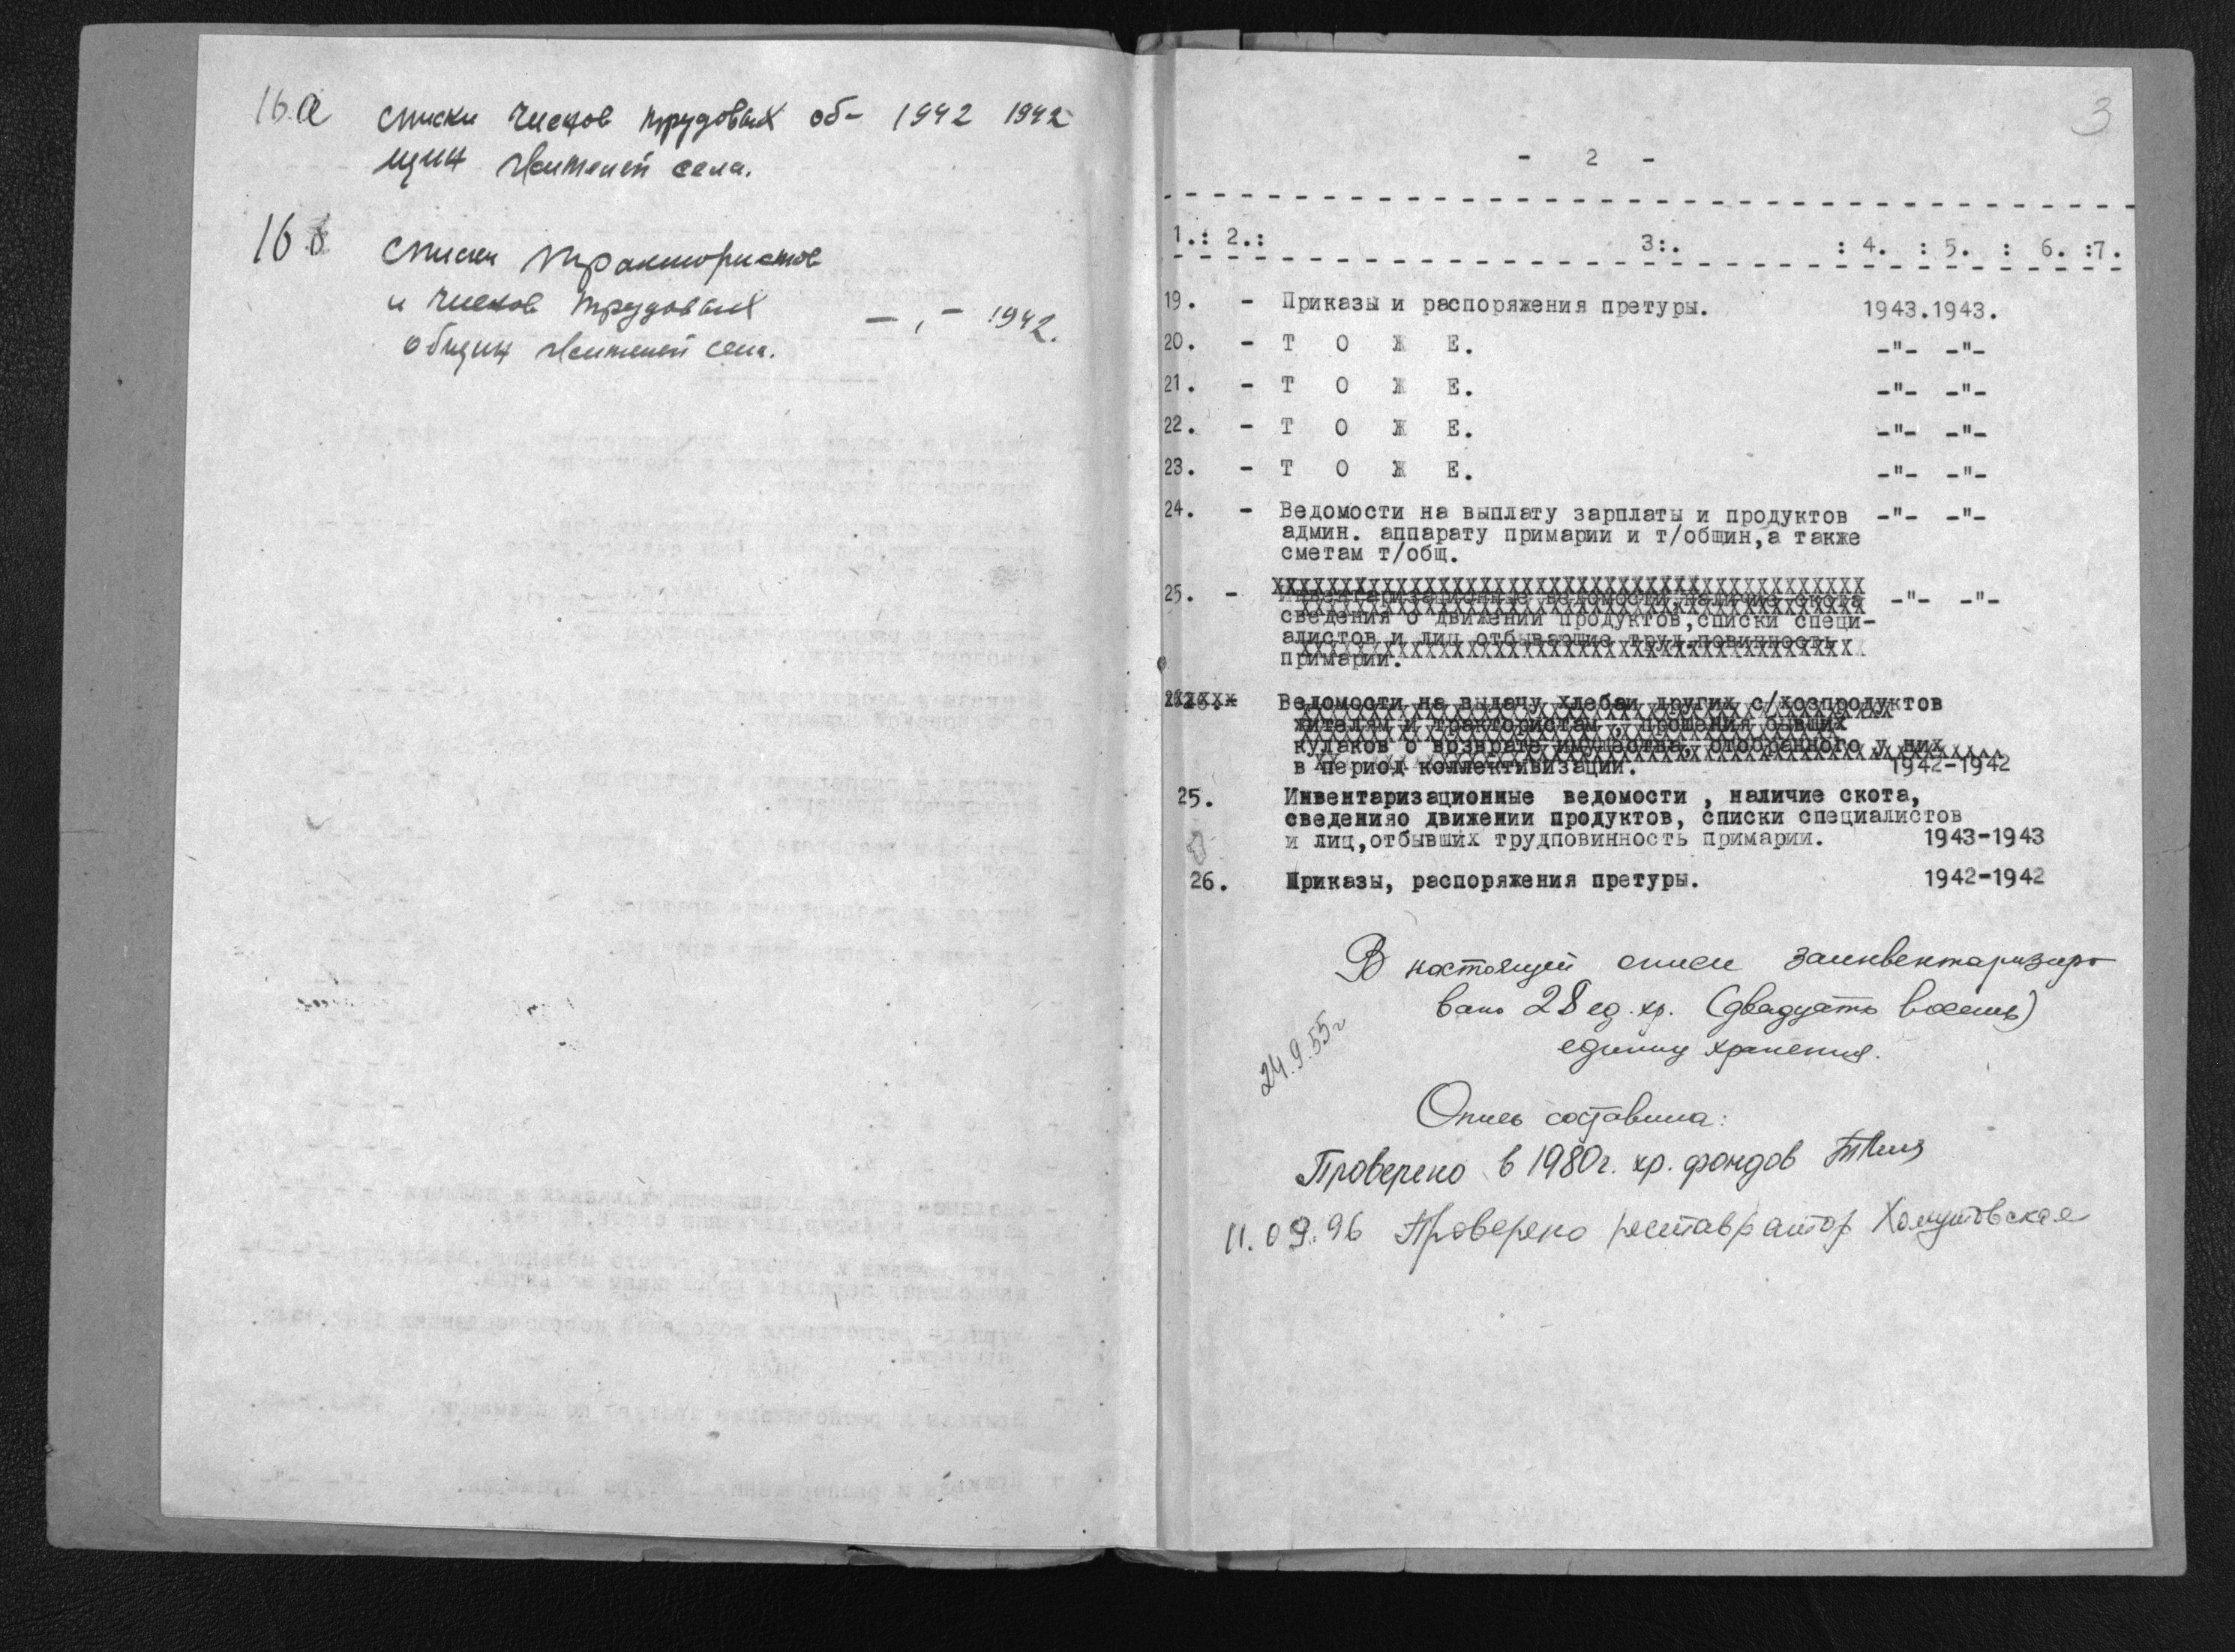 16.а списки членов трудовых об- 1942 1942
щин жителей села.
16 б списки трактористов
и членов трудовых -,- 1942.
общин жителей села.
3
- 2 -
1.: 2.: 3:. : 4. : 5. : 6. :7.
19. - Приказы и распоряжения претуры. 1943.1943.
20. - Т О Ж Е. -"- -"-
21. - Т О Ж Е. -"- -"-
22. - Т О Ж Е. -"- -"-
23. - Т О Ж Е. -"- -"-
24. - Ведомости на выплату зарплаты и продуктов -"- -"-
админ. аппарату примарии и т/общин,а также
сметам т/общ.
25. - Инвентаризационные ведомости,наличие скота -"- -"-
сведения о движении продуктов,списки специ-
алистов и лиц отбывающие труд.повинность
примарии.
26.- Ведомости на выдачу хлебаи других с/хозпродуктов
жителям и трактористам , прошения бывших
кулаков о возврате имущества, отобранного у них
в период коллективизации. 1942-1942
25. Инвентаризационные ведомости , наличие скота,
сведенияо движении продуктов, списки специалистов
и лиц,отбывших трудповинность примарии. 1943-1943
26. Приказы, распоряжения претуры. 1942-1942
В настоящей описи заинвентаризиро
вано 28 ед. хр. (двадцать восемь)
единиц хранения.
24.9.55г
Опись составила:
Проверено в 1980г. хр. фондов
11.09.96 Проверено реставратор Хомутовская